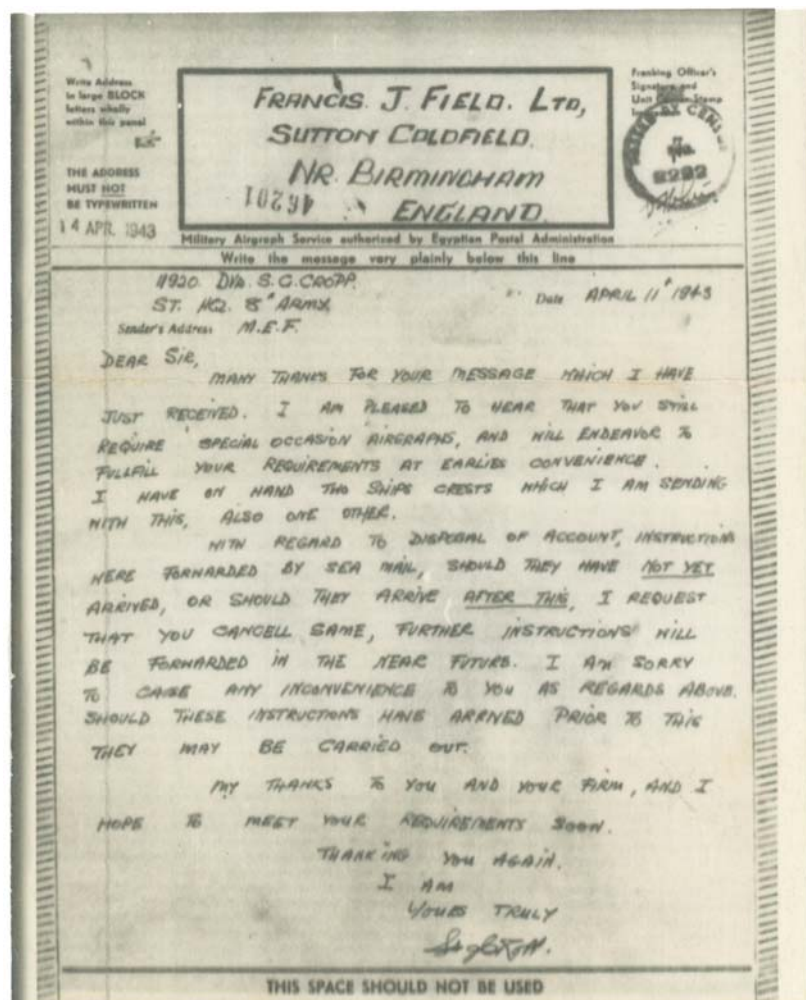 Write Address
in large BLOCK
letters wholly
within this panel
THE ADDRESS
MUST NOT
BE TYPEWRITTEN
14 APR. 1943
FRANCIS. J. FIELD. LTD,
SUTTON COLDFIELD.
NR. BIRMINGHAM
ENGLAND.
46201
Franking Officer's
Signature and
Unit Stamp
8292
Military Airgraph Service authorized by Egyptian Postal Administration
Write the message very plainly below this line
11920 DVR. S.G. CROPP.
ST. HQ. 8" ARMY,
Sender's Address M.E.F.
Date APRIL 11" 1943
DEAR SIR,
MANY THANKS FOR YOUR MESSAGE WHICH I HAVE
JUST RECEIVED. I AM PLEASED TO HEAR THAT YOU STILL
REQUIRE SPECIAL OCCASION AIRGRAPHS, AND WILL ENDEAVOR TO
FULLFILL YOUR REQUIREMENTS AT EARLIES CONVENIENCE.
I HAVE ON HAND TWO SHIPS CRESTS WHICH I AM SENDING
WITH THIS, ALSO ONE OTHER.
WITH REGARD TO DISPOSAL OF ACCOUNT, INSTRUCTIONS
WERE FORWARDED BY SEA MAIL, SHOULD THEY HAVE NOT YET
ARRIVED, OR SHOULD THEY ARRIVE AFTER THIS, I REQUEST
THAT YOU CANCELL SAME, FURTHER INSTRUCTIONS WILL
BE FORWARDED IN THE NEAR FUTURE. I AM SORRY
TO CAUSE ANY INCONVENIENCE TO YOU AS REGARDS ABOVE.
SHOULD THESE INSTRUCTIONS HAVE ARRIVED PRIOR TO THIS
THEY MAY BE CARRIED OUT.
MY THANKS TO YOU AND YOUR FIRM, AND I
HOPE TO MEET YOUR REQUIREMENTS SOON.
THANKING YOU AGAIN.
I AM
YOURS TRULY
THIS SPACE SHOULD NOT BE USED